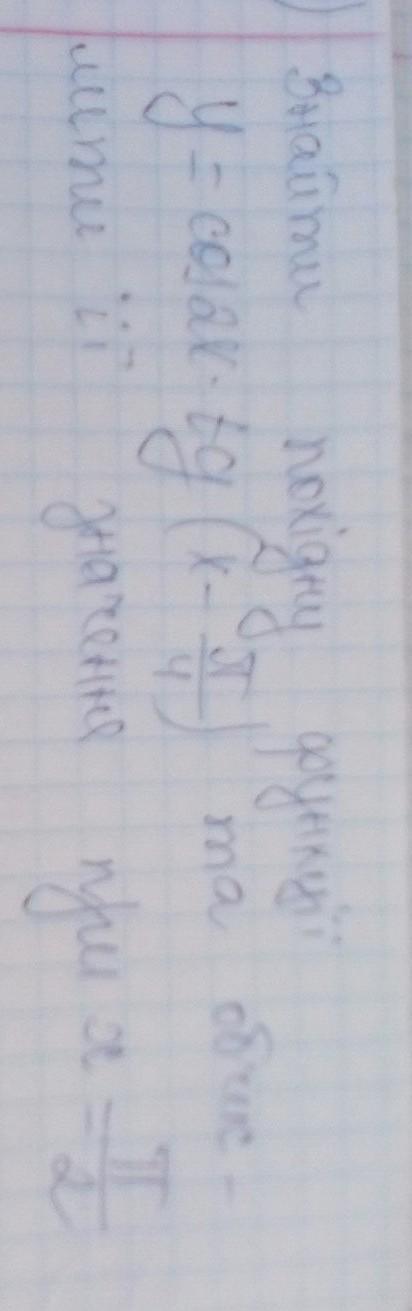 )
Знайти похідну функції
y = cos2x · tg (x - π/4) та обчис-
лити її значення при x = π/2